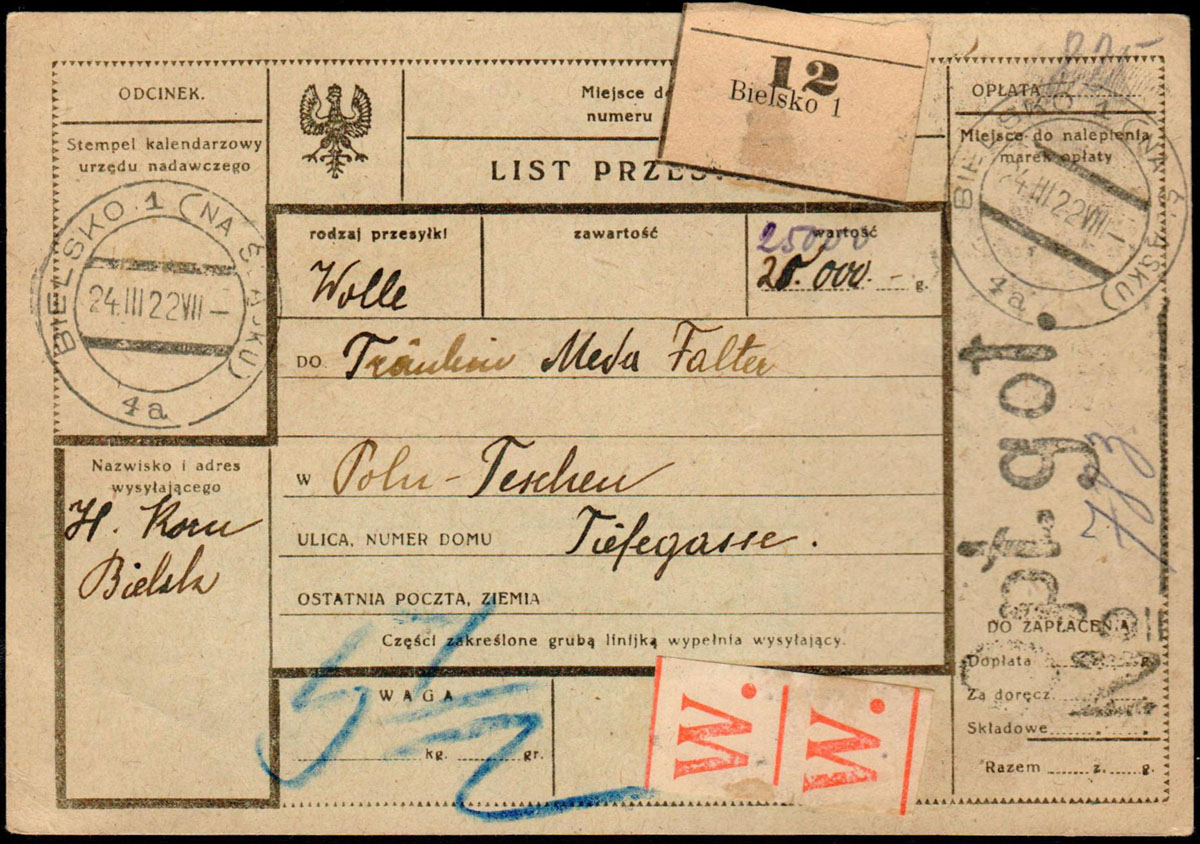 12
Bielsko 1
ODCINEK.
Stempel kalendarzowy
urzędu nadawczego
BIELSKO 1 (NA ŚLĄSKU)
24.III 22 VII –
4a
Miejsce do
numeru
LIST PRZES
OPŁATA
Miejsce do nalepienia
marek opłaty
BIELSKO 1 (NA ŚLĄSKU)
24.III 22 VII –
4a
rodzaj przesyłki
Wolle
zawartość
wartość
25000
25.000.- g.
DO Fräulein Meda Falter
W Poln-Teschen
ULICA, NUMER DOMU Tiefegasse.
OSTATNIA POCZTA, ZIEMIA
Części zakreślone grubą linijką wypełnia wysyłający.
Nazwisko i adres
wysyłającego
H. Korn
Bielsk
WAGA
kg. gr.
W. W.
Opt. got.
№
DO ZAPŁACENIA
Dopłata z. g.
Za doręcz.
Składowe
Razem z. g.